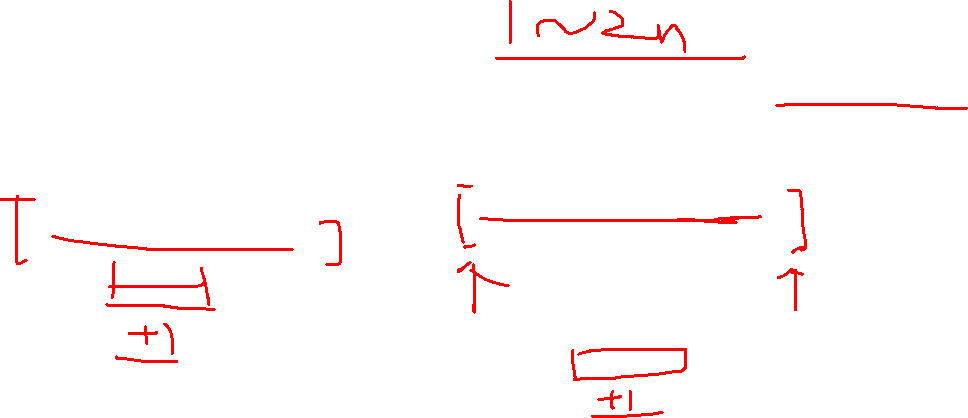 1~2n
[ ]
[ ]
+1
+1